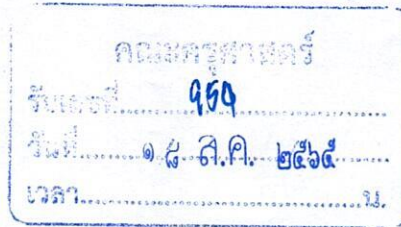 คณะครุศาสตร์
รับเลขที่ 959
วันที่ ๑๘ ส.ค. ๒๕๖๕
เวลา น.